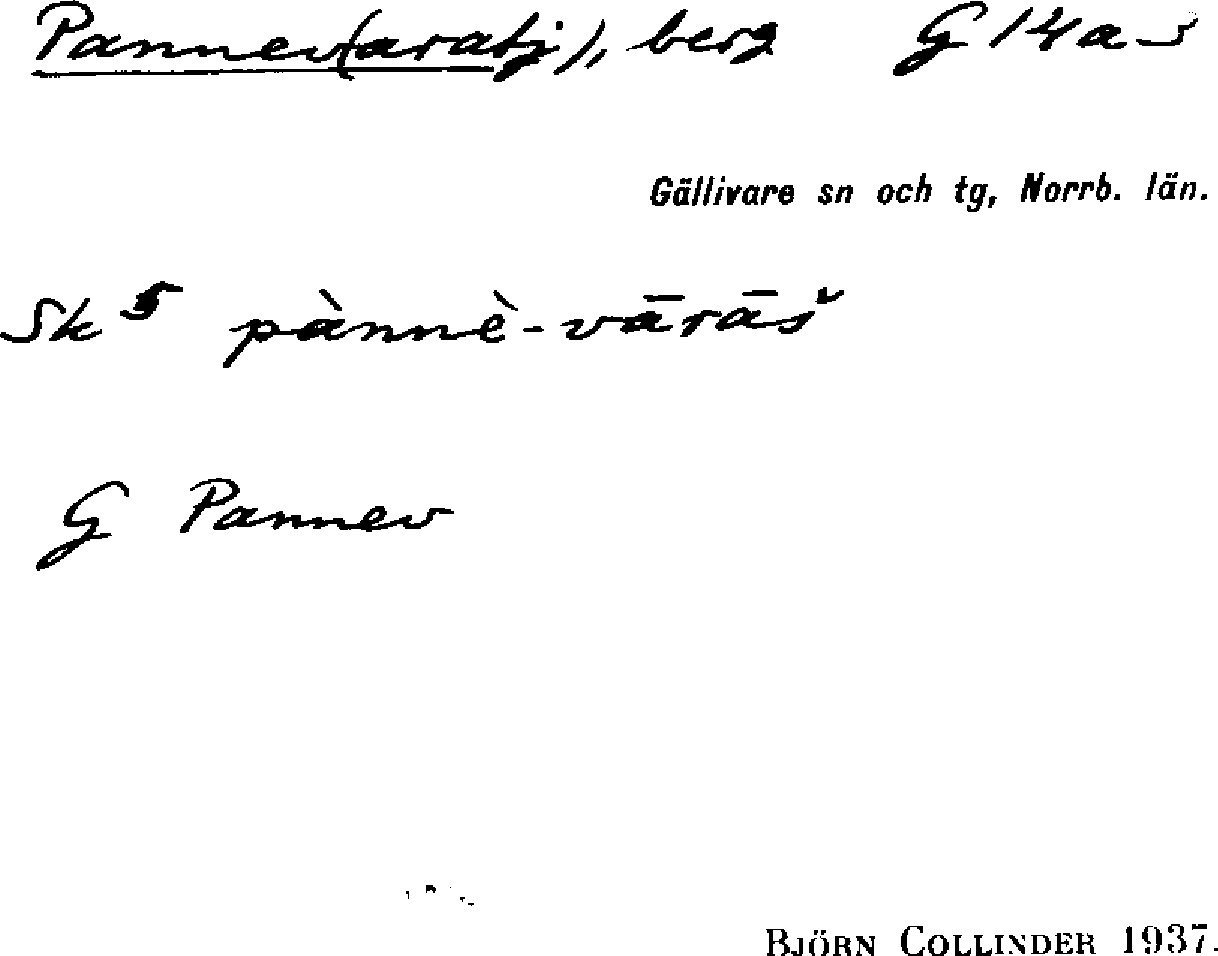 Pannev(aratj), berg G 14 a s
Gällivare sn och tg, Norrb. län.
Sk 5 pànnè-vārāš
G Pannev
BJÖRN COLLINDER 1937.